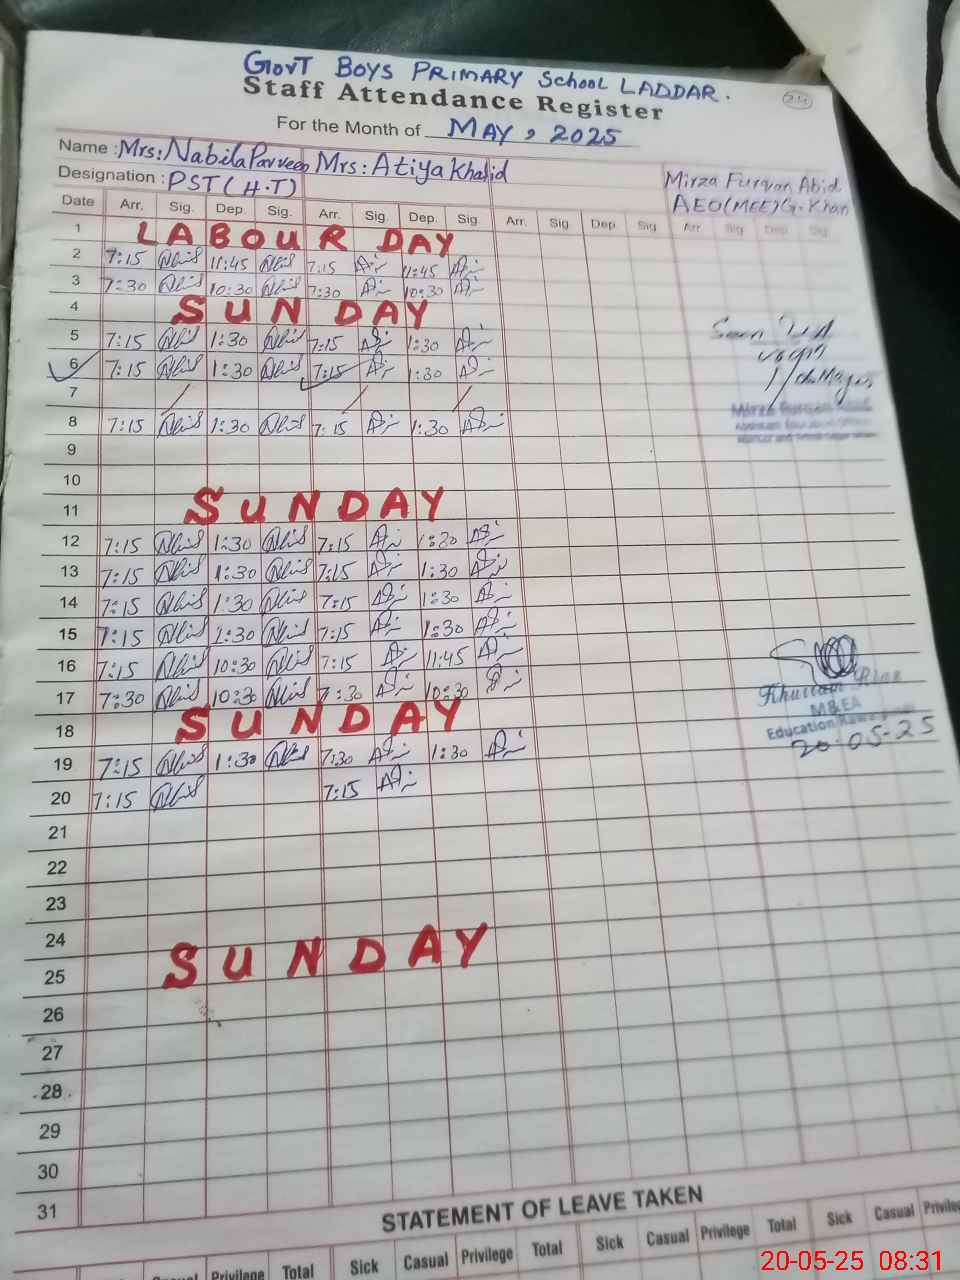 GovT BOYS PRIMARY School LADDAR.
Staff Attendance Register
For the Month of MAY, 2025
Name : Mrs: Nabila Parveen Mrs: Atiya Khalid Mirza Furqan Abid
Designation : PST (H.T) AEO(MEE)G.Khan
Date Arr. Sig. Dep. Sig. Arr. Sig. Dep. Sig. Arr. Sig. Dep. Sig. Arr. Sig. Dep. Sig.
1 LABOUR DAY
2 7:15 11:45 7:15 11:45
3 7:30 10:30 7:30 10:30
4 SUNDAY
5 7:15 1:30 7:15 1:30
6 7:15 1:30 7:15 1:30
7
8 7:15 1:30 7:15 1:30
9
10
11 SUNDAY
12 7:15 1:30 7:15 1:30
13 7:15 1:30 7:15 1:30
14 7:15 1:30 7:15 1:30
15 7:15 1:30 7:15 1:30
16 7:15 10:30 7:15 11:45
17 7:30 10:30 7:30 10:30
18 SUNDAY
19 7:15 1:30 7:30 1:30
20 7:15 7:15
M&EA
Education
20-05-25
21
22
23
24
25 SUNDAY
26
27
28
29
30
31
STATEMENT OF LEAVE TAKEN
Casual Privilege Total Sick Casual Privilege Total Sick Casual Privilege Total Sick Casual
20-05-25 08:31